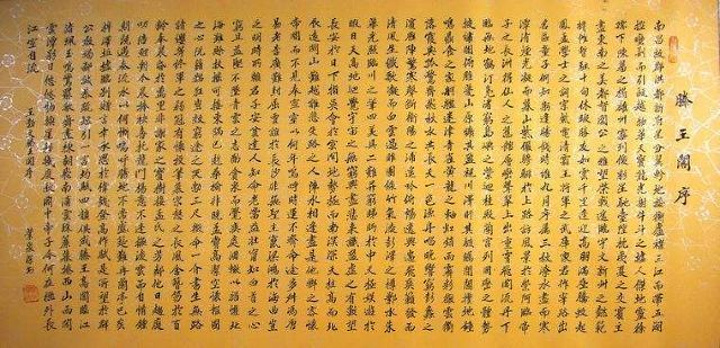 滕王閣序
南昌故郡洪都新府星分翼軫地接衡廬襟三江而帶五湖
控蠻荊而引甌越物華天寶龍光射牛斗之墟人傑地靈徐
孺下陳蕃之榻雄州霧列俊彩星馳臺隍枕夷夏之交賓主
盡東南之美都督閻公之雅望棨戟遙臨宇文新州之懿範
襜帷暫駐十旬休暇勝友如雲千里逢迎高朋滿座騰蛟起
鳳孟學士之詞宗紫電清霜王將軍之武庫家君作宰路出
名區童子何知躬逢勝餞時維九月序屬三秋潦水盡而寒
潭清煙光凝而暮山紫儼驂騑於上路訪風景於崇阿臨帝
子之長洲得仙人之舊館層巒聳翠上出重霄飛閣流丹下
臨無地鶴汀鳧渚窮島嶼之縈迴桂殿蘭宮列岡巒之體勢
披繡闥俯雕甍山原曠其盈視川澤盱其駭矚閭閻撲地鐘
鳴鼎食之家舸艦迷津青雀黃龍之舳虹銷雨霽彩徹雲衢
落霞與孤鶩齊飛秋水共長天一色漁舟唱晚響窮彭蠡之
濱雁陣驚寒聲斷衡陽之浦遙吟俯暢逸興遄飛爽籟發而
清風生纖歌凝而白雲遏睢園綠竹氣凌彭澤之樽鄴水朱
華光照臨川之筆四美具二難并窮睇眄於中天極娛遊於
暇日天高地迥覺宇宙之無窮興盡悲來識盈虛之有數望
長安於日下指吳會於雲間地勢極而南溟深天柱高而北
辰遠關山難越誰悲失路之人萍水相逢盡是他鄉之客懷
帝閽而不見奉宣室以何年嗚呼時運不齊命途多舛馮唐
易老李廣難封屈賈誼於長沙非無聖主竄梁鴻於海曲豈
乏明時所賴君子安貧達人知命老當益壯寧知白首之心
窮且益堅不墜青雲之志酌貪泉而覺爽處涸轍以猶懽北
海雖賒扶搖可接東隅已逝桑榆非晚孟嘗高潔空懷報國
之心阮籍猖狂豈效窮途之哭勃三尺微命一介書生無路
請纓等終軍之弱冠有懷投筆慕宗愨之長風舍簪笏於百
齡奉晨昏於萬里非謝家之寶樹接孟氏之芳鄰他日趨庭
叨陪鯉對今晨捧袂喜托龍門楊意不逢撫凌雲而自惜鍾
期既遇奏流水以何慚嗚呼勝地不常盛筵難再蘭亭已矣
梓澤邱墟臨別贈言幸承恩於偉餞登高作賦是所望於群
公敢竭鄙誠恭疏短引一言均賦四韻俱成滕王高閣臨江
渚珮玉鳴鸞罷歌舞畫棟朝飛南浦雲珠簾暮捲西山雨閒
雲潭影日悠悠物換星移幾度秋閣中帝子今何在檻外長
江空自流
王勃文滕王閣序